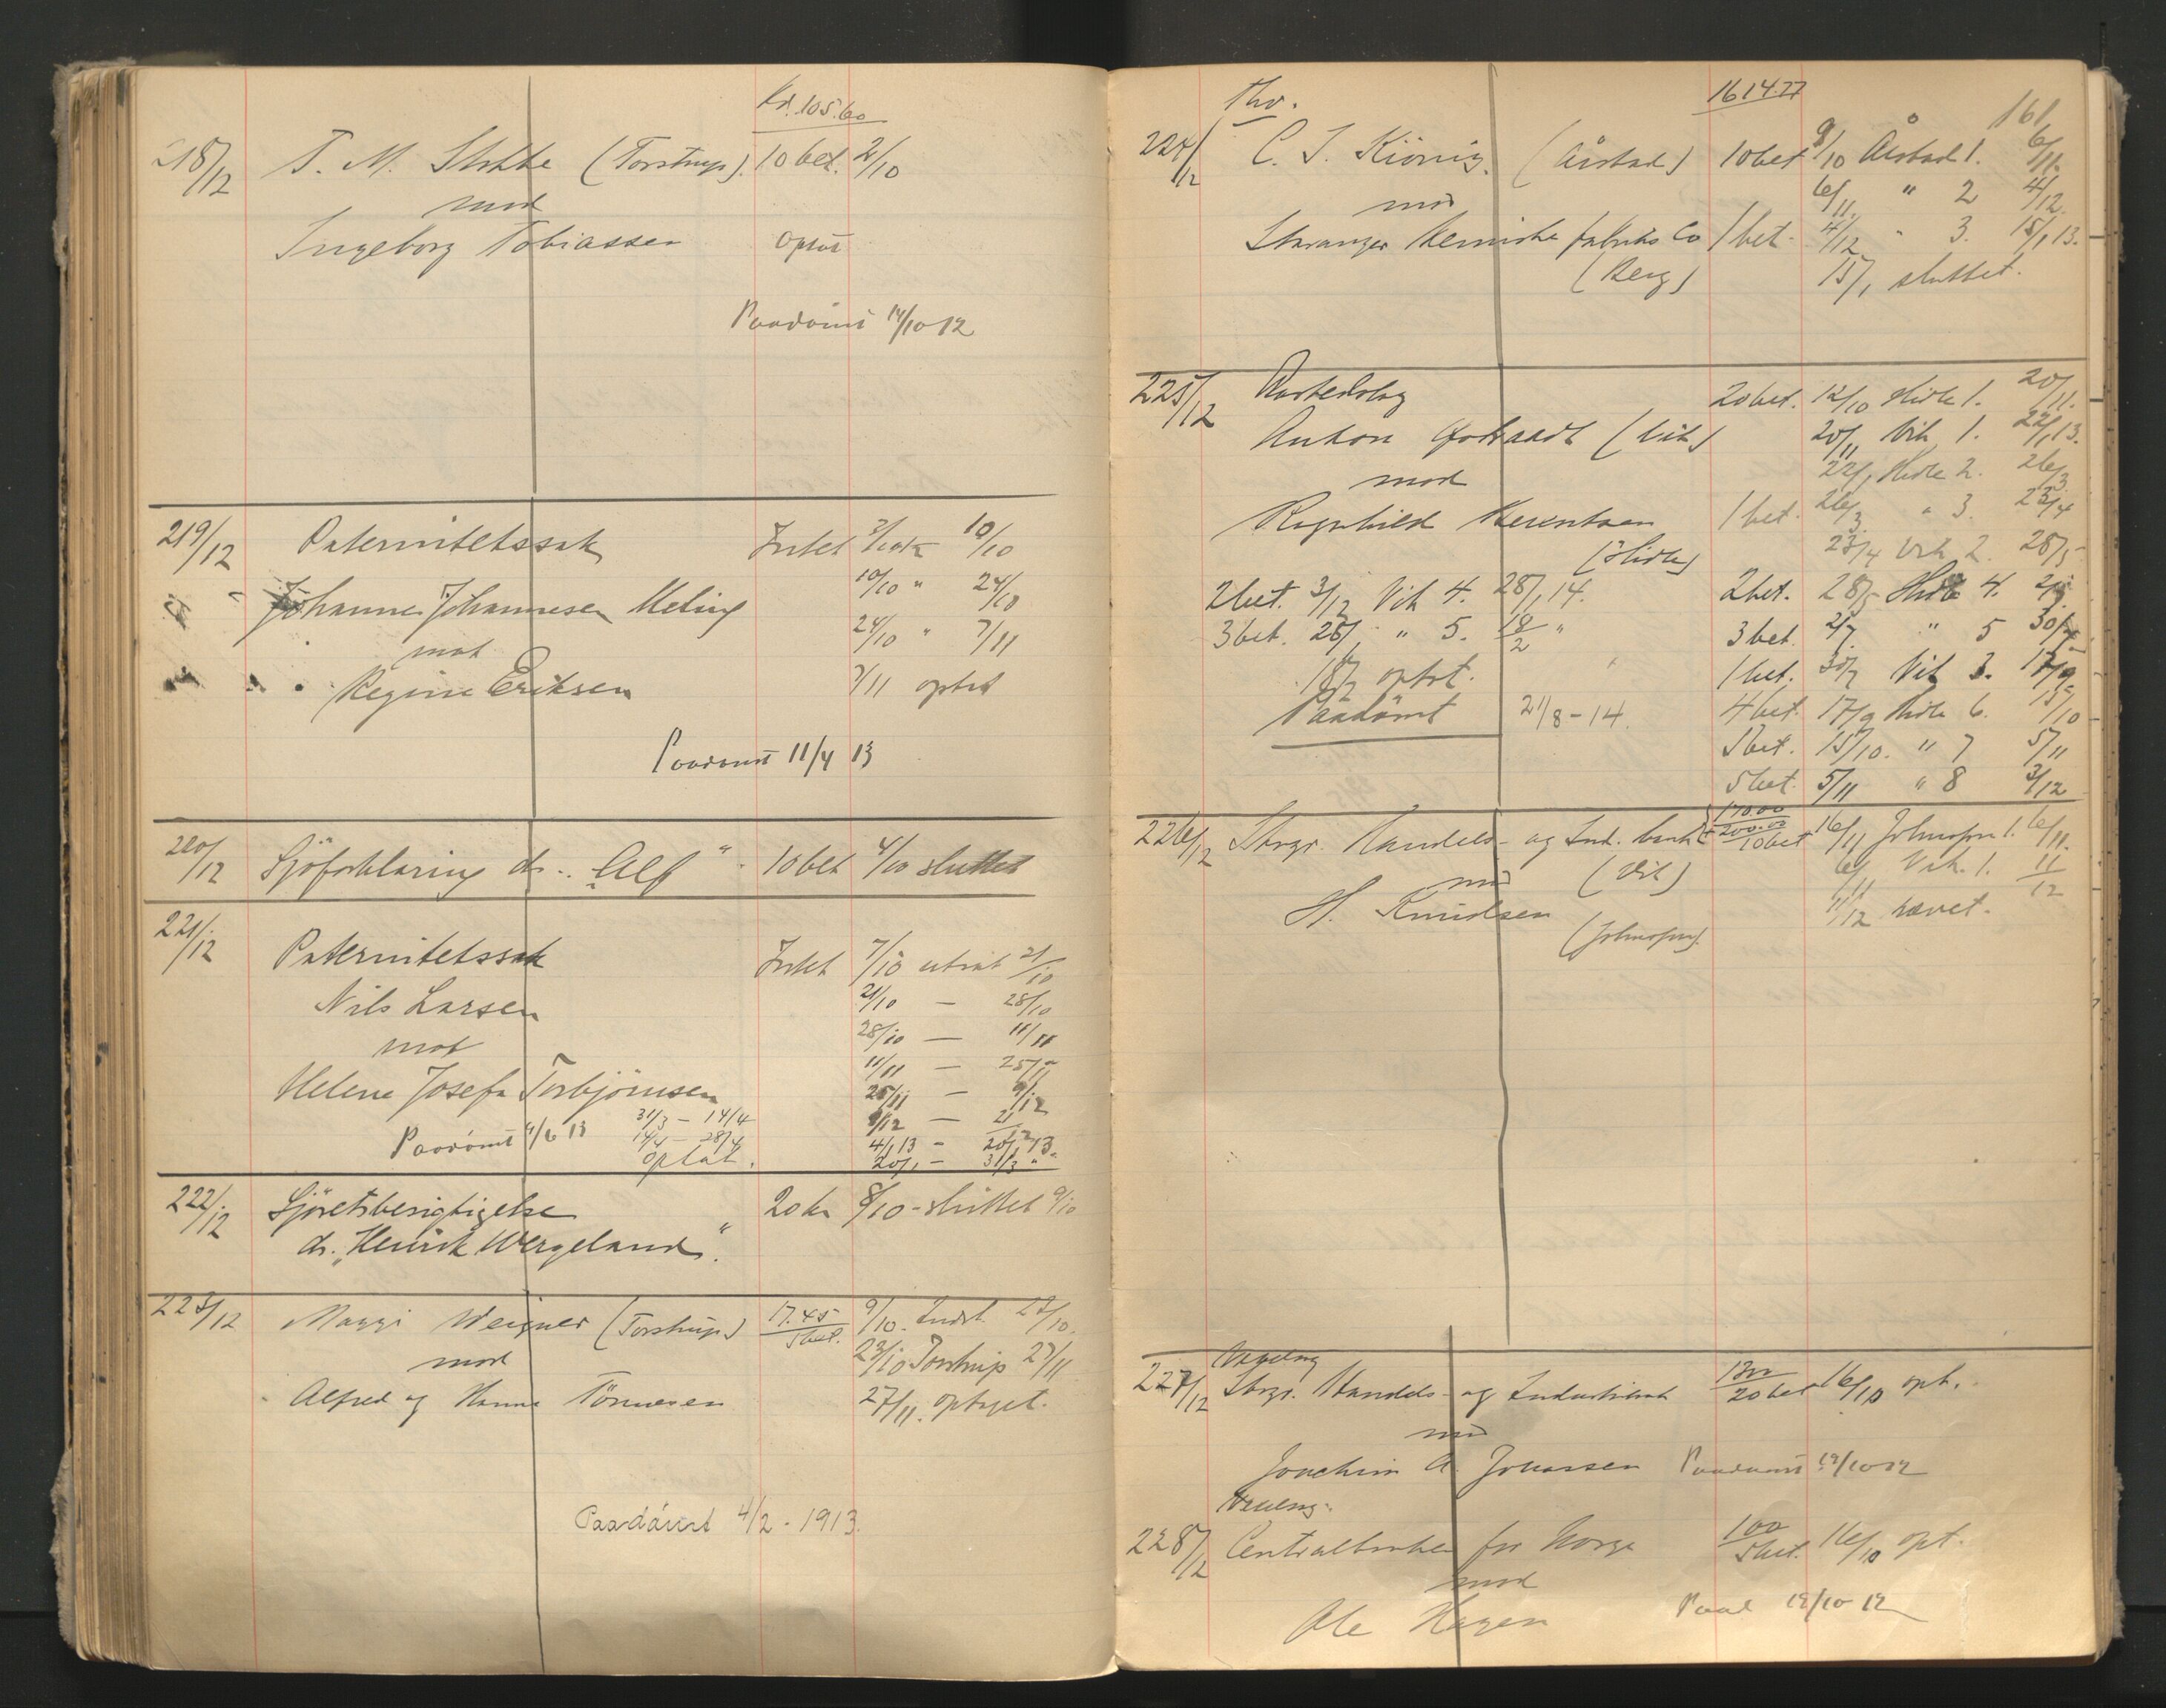 Kr. 105.60
218/12 T. M. (Torstrup). 10 bet. 2/10
mod
Ingeborg Tobiassen optat
Paadömt 14/10 12
219/12 Paternitetssak Intet 10/10
Johannes Johannesen Meling 10/10 " 24/10
mot 24/10 " 7/11
Regine Eriksen 7/11 optat
Paadömt 11/4 13
220/12 Sjöforklaring ds. "Alf" 10 bet 4/10 sluttet
221/12 Paternitetssak Intet 7/10 utsat 21/10
Nils Larsen 21/10 — 28/10
mot 28/10 — 11/11
11/11 — 25/11
Helene Josefa Torbjörnsen 25/11 — 9/12
31/3 - 14/4 9/12 —
Paadömt 4/6 13 14/4 - 28/4 4/1 13 - 20/1 13.
optat. 20/1 - 31/3 "
222/12 Sjöretsbesigtigelse 20 kr 8/10 - sluttet 9/10
ds. "Henrik Wergeland".
223/12 Maggi (Torstrup) 17.45 / 5 bet. 9/10. Indst. 23/10.
mod 23/10 Torstrup 27/11
Alfred og Hanna Tönnesen 27/11. optaget.
Paadömt 4/2 - 1913.
161
Thv. 1614.77
224/12 C. J. Kiönig. (Årstad) 10 bet 9/10 Årstad 1. 6/11.
mod 6/11. " 2 4/12.
Stavanger Kemiske fabriks Co 1 bet. 4/12 " 3. 15/1 13.
(Berg) 15/1 sluttet.
225/12 20 bet. 12/10 Hidle 1. 20/11.
Anton (Vik) 20/11 Vik 1. 22/1 13.
mod 22/1 Hidle 2. 26/3
Ragnhild Berentsen 1 bet. 26/3. " 3. 23/4
(Hidle) 23/4 Vik 2. 28/5
2 bet. 3/12 Vik 4. 28/1 14. 2 bet. 28/5 Hidle 4. 2/7
3 bet. 28/1 " 5. 18/2 " 3 bet. 2/7. " 5 30/7
18/2 optat. 1 bet. 30/7 Vik 3. 17/9.
Paadömt 21/8 - 14. 4 bet. 17/9 Hidle 6. 15/10
5 bet. 15/10. " 7 5/11
5 bet. 5/11 " 8 3/12
170.00
226/12 Stvgr. Handels- og Ind. bank 200.00 / 10 bet 16/11 Johnsen 1. 6/11.
mod (Vik) 6/11 Vik. 1. 11/12
H. Knudsen 11/12 hævet.
(Johnsen).
Vexelsag
227/12 Stvgr. Handels- og Industribank 1300 / 20 bet 16/10 opt.
mod
Joachim A. Johassen Paadömt 19/10 12
Vexelsag.
228/12 Centralbanken for Norge 100 / 5 bet. 16/10 opt.
mod
Ole Hagen Paad 19/10 12